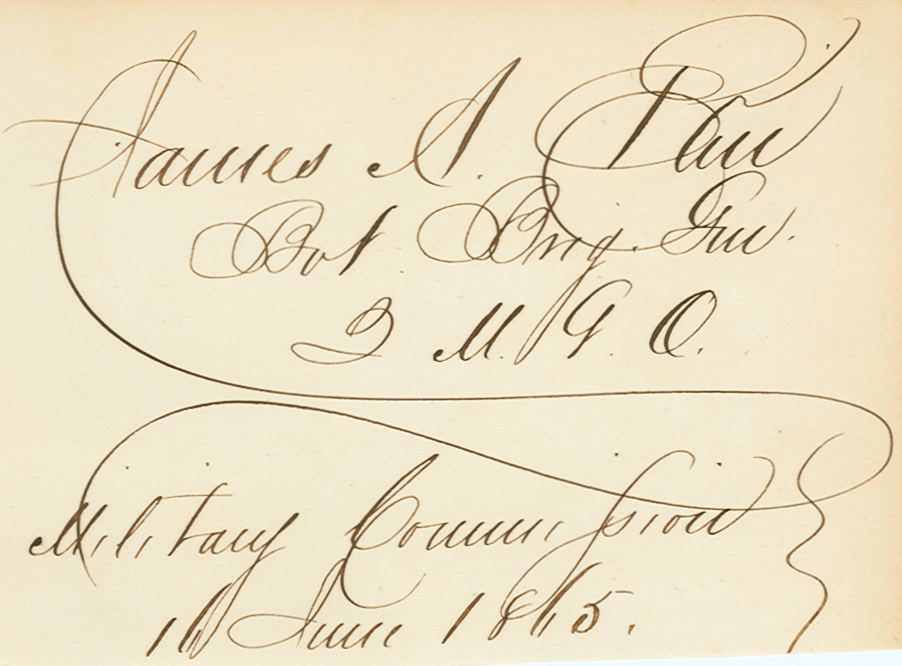 James A. Ekin
Bvt Brig. Gen.
Q M. G. O.
Military Commission
16 June 1865.